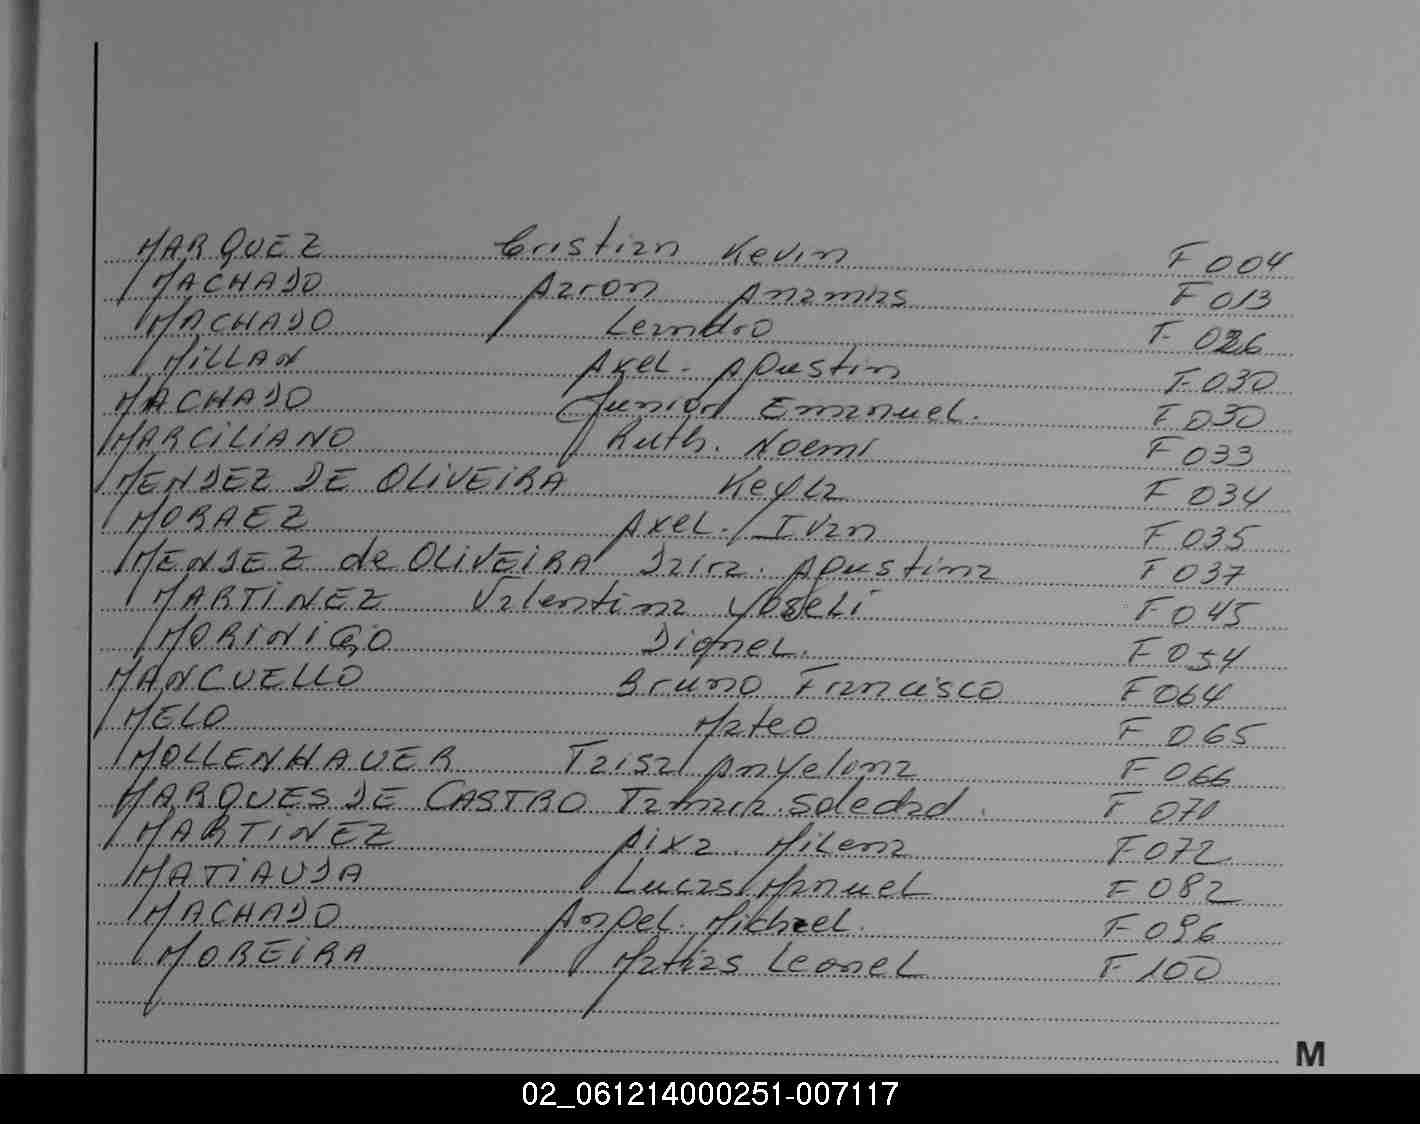 MARQUEZ Cristian Kevin F 004
MACHADO Aaron Ananias F 013
MACHADO Leandro F 026
MiLLAN Axel. Agustin F 030
MACHADO Junior Emanuel. F 030
MARCiLiANO Ruth. Noemi F 033
MENDEZ DE OLiVEiRA Keyla F 034
MORAEZ Axel. Ivan F 035
MENDEZ de OLiVEiRA Daira. Agustina F 037
MARTiNEZ Valentina Yoseli F 045
MORiNiGO Dignel. F 054
MANCUELLO Bruno Francisco F 064
MELO Mateo F 065
MOLLENHAUER Taisa Anyelina F 066
MARQUES DE CASTRO Tamara. Soledad. F 071
MARTiNEZ Aixa. Milena F 072
MATiAUDA Lucas Manuel F 082
MACHADO Angel. Michael. F 096
MOREiRA Matias Leonel F 100
M
02_061214000251-007117